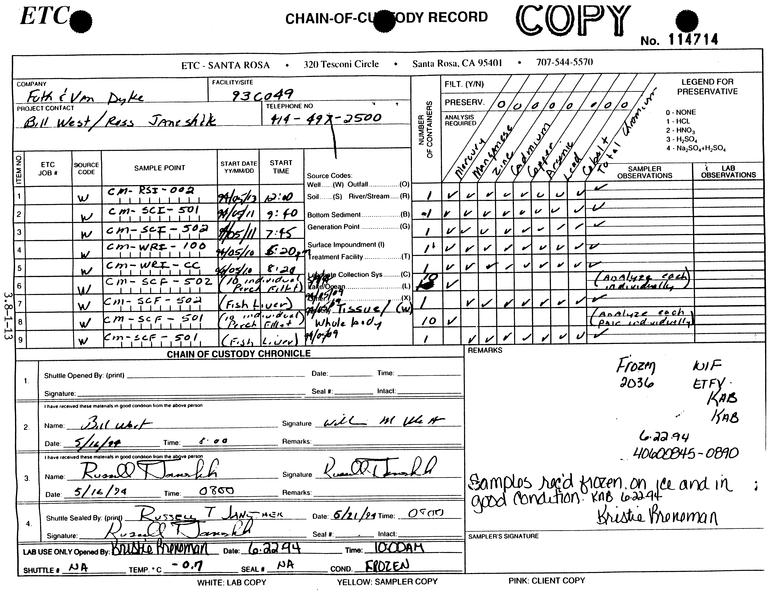 ETC
CHAIN-OF-CUSTODY RECORD
COPY
No. 114714
ETC - SANTA ROSA • 320 Tesconi Circle • Santa Rosa, CA 95401 • 707-544-5570
COMPANY
Foth & Van Dyke
FACILITY/SITE
93C049
PROJECT CONTACT
Bill West/Ross Janeshik
TELEPHONE NO
414-497-2500
NUMBER OF CONTAINERS
FILT. (Y/N)
PRESERV. 0 0 0 0 0 0 0 0
ANALYSIS REQUIRED
Mercury
Manganese
Zinc
Cadmium
Copper
Arsenic
Lead
Cobalt
Total Chromium
LEGEND FOR PRESERVATIVE
0 - NONE
1 - HCL
2 - HNO₃
3 - H₂SO₄
4 - Na₂SO₄+H₂SO₄
ITEM NO
ETC JOB #
SOURCE CODE
SAMPLE POINT
START DATE YY/MM/DD
START TIME
Source Codes:
Well (W) Outfall (O)
Soil (S) River/Stream (R)
Bottom Sediment (B)
Generation Point (G)
Surface Impoundment (I)
Treatment Facility (T)
Leachate Collection Sys (C)
Lake/Ocean (L)
(X)
Tissue/ (W)
Whole body
SAMPLER OBSERVATIONS
LAB OBSERVATIONS
1 W CM-RSI-002 94/05/13 12:00 1 ✓ ✓ ✓ ✓ ✓ ✓ ✓ ✓
2 W CM-SCI-501 94/05/11 9:40 1 ✓ ✓ ✓ ✓ ✓ ✓ ✓ ✓
3 W CM-SCI-502 94/05/11 7:45 1 ✓ ✓ ✓ ✓ ✓ ✓ ✓ ✓
4 W CM-WRI-100 94/05/10 5:20pm 1 ✓ ✓ ✓ ✓ ✓ ✓ ✓ ✓
5 W CM-WRI-CC 94/05/10 8:20 1 ✓ ✓ ✓ ✓ ✓ ✓ ✓ ✓
6 W CM-SCF-502 (10 individual Perch Fillet) 10 ✓ (Analyze each individually)
7 W CM-SCF-502 (Fish Liver) 1 ✓ ✓ ✓ ✓ ✓ ✓ ✓
8 W CM-SCF-501 (10 individual Perch Fillet) 10 ✓ (Analyze each pair individually)
9 W CM-SCF-501 (Fish Liver) 1 ✓ ✓ ✓ ✓ ✓ ✓ ✓
3.8-1-13
CHAIN OF CUSTODY CHRONICLE
1. Shuttle Opened By: (print) Date: Time:
Signature: Seal #: Intact:
I have received these materials in good condition from the above person
2. Name: Bill West Signature
Date: 5/16/94 Time: 8:00 Remarks:
I have received these materials in good condition from the above person
3. Name: 3. Signature
Date: 5/16/94 Time: 0800 Remarks:
4. Shuttle Sealed By: (print) RUSSELL T Date: 6/21/94 Time: 0800
Signature: Seal #: Intact:
LAB USE ONLY Opened By: Kristie Breneman Date: 6-22-94 Time: 10:00AM
SHUTTLE # NA TEMP. °C -0.7 SEAL # NA COND. FROZEN
REMARKS
Frozen WIF
2036 ETFV
KAB
KAB
6-22-94
40600845-0890
Samples rec'd frozen on ice and in
good condition. KAB 6-22-94
Kristie Breneman
SAMPLER'S SIGNATURE
WHITE: LAB COPY YELLOW: SAMPLER COPY PINK: CLIENT COPY